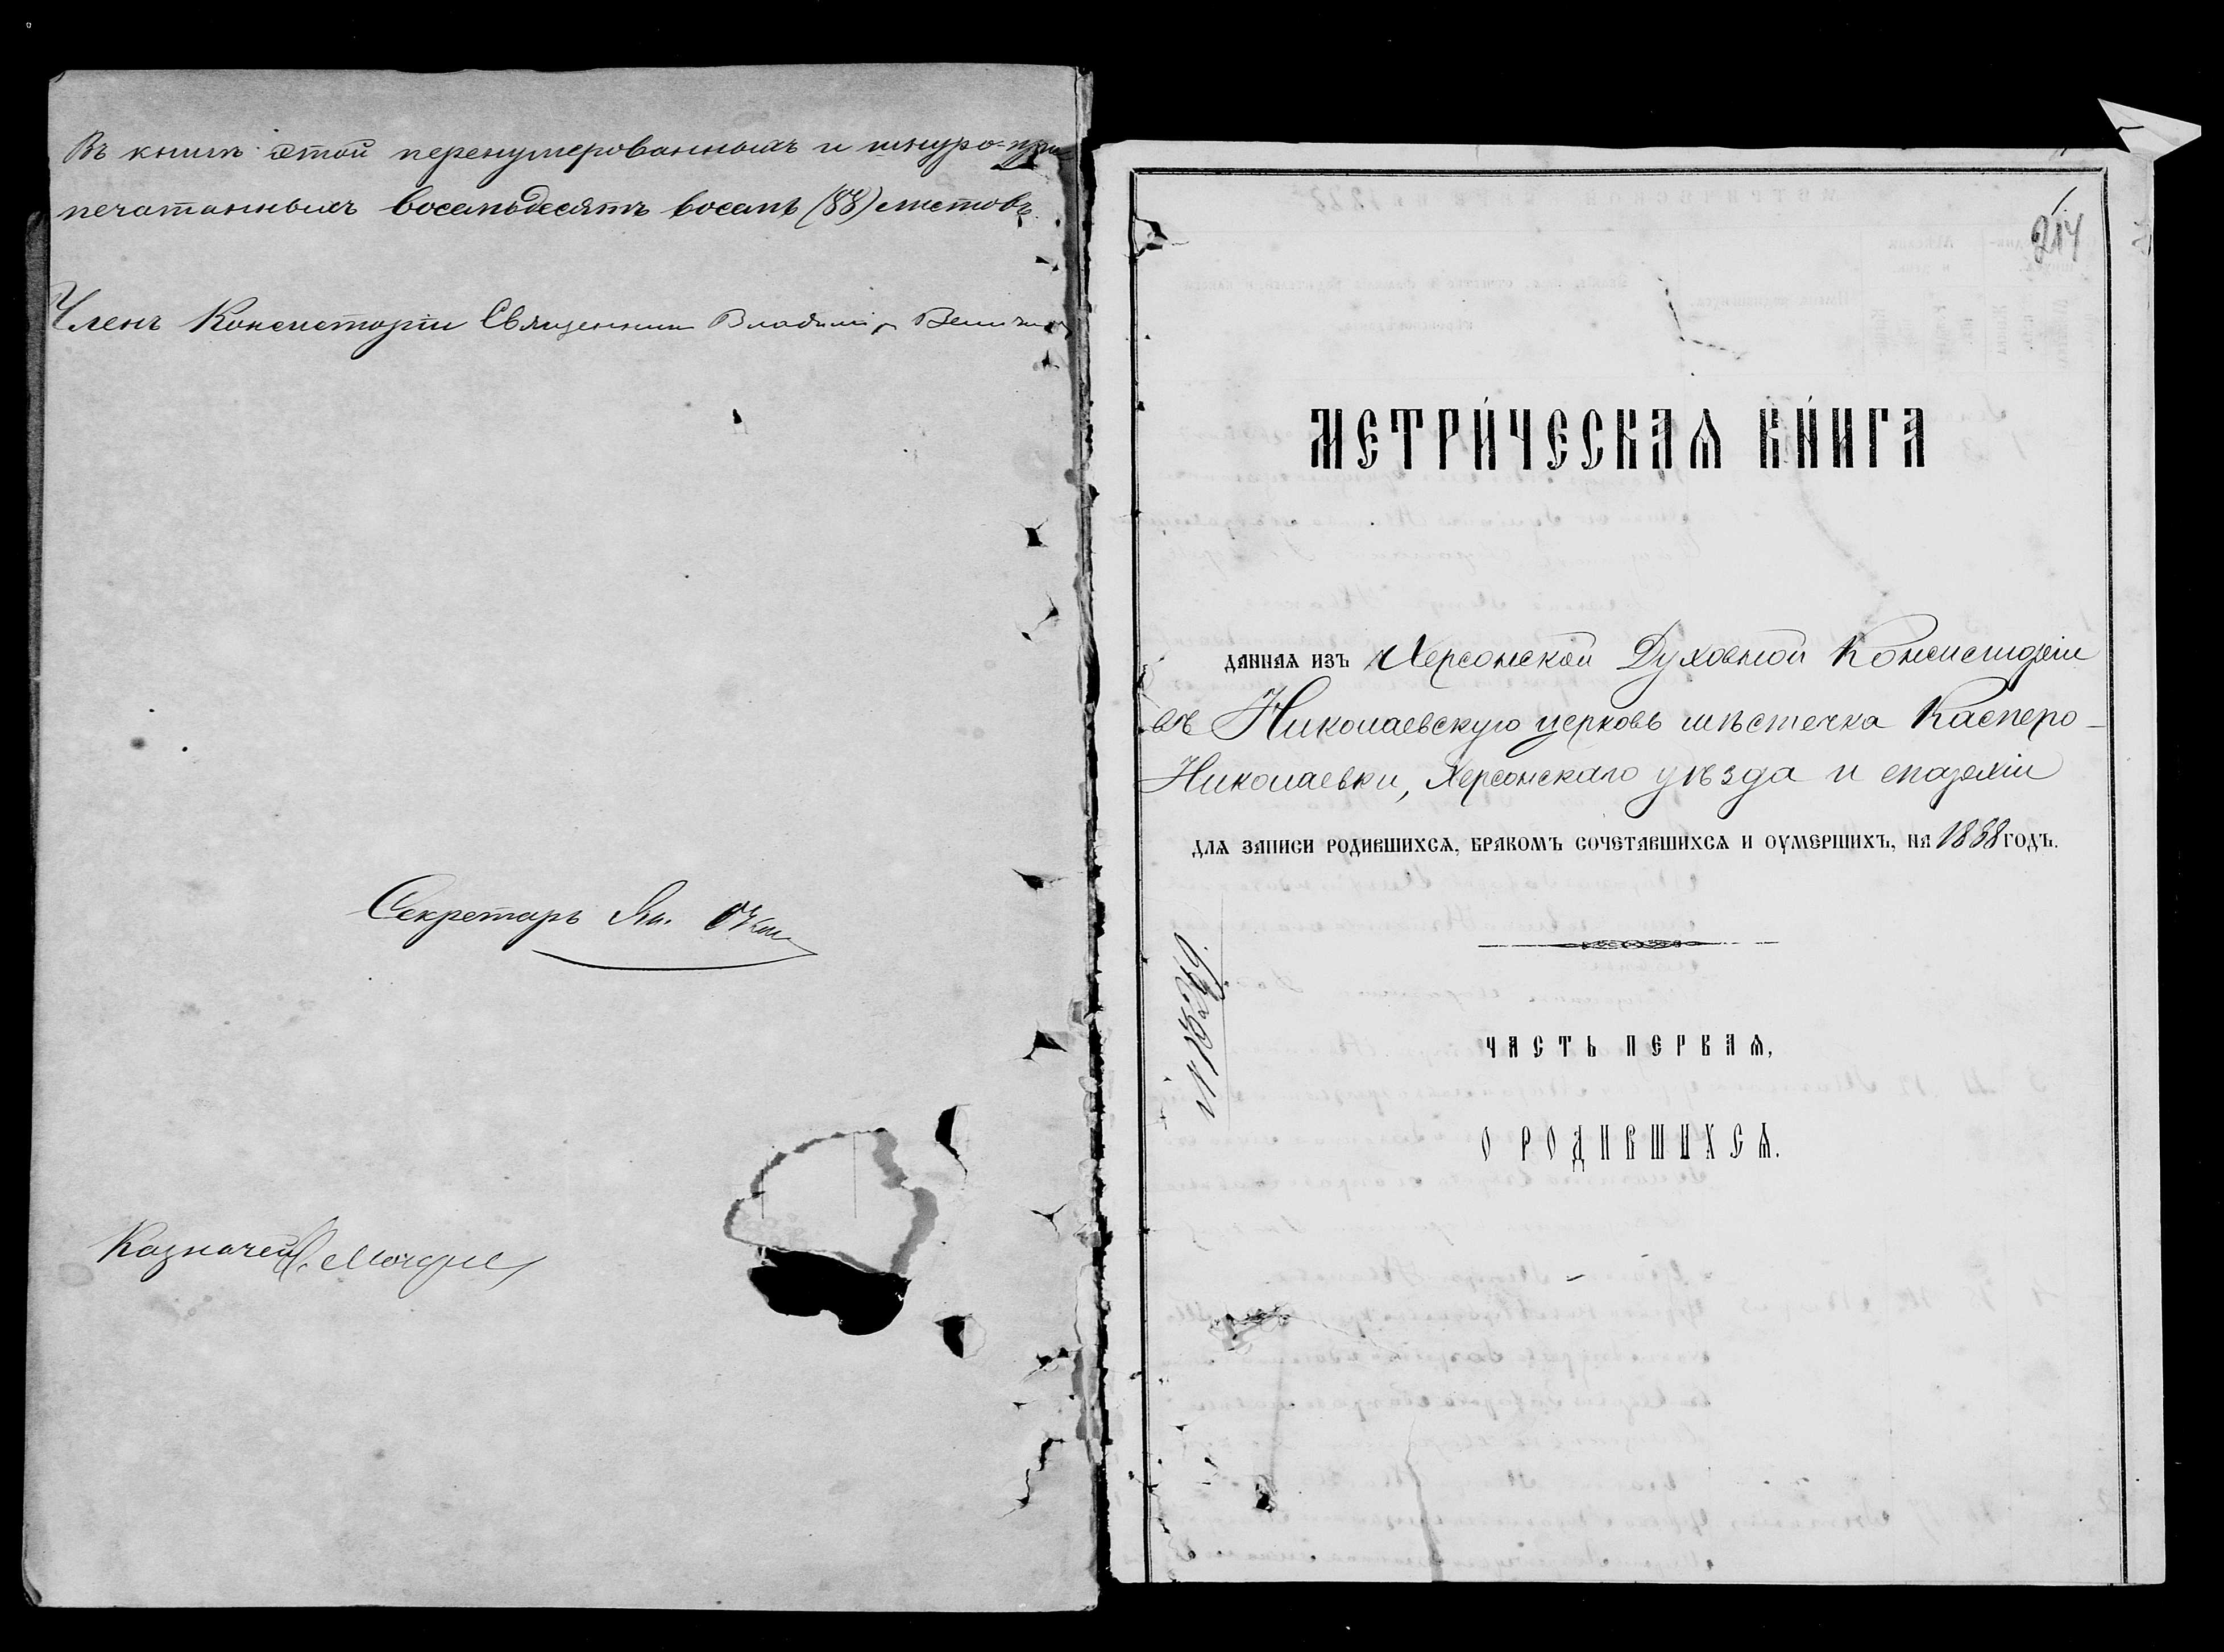 Въ книгѣ этой перенумерованныхъ и шнуро-при
печатанныхъ восемьдесятъ восемь (88) листовъ.
Членъ Консисторіи Священникъ Владиміръ
Секретарь
Казначей
1.
214
МЕТРИ́ЧЕСКАѦ КНИ́ГА
ДАННАѦ ИЗЪ Херсонской Духовной Консисторіи
въ Николаевскую церковь мѣстечка Касперо-
Николаевки, Херсонскаго уѣзда и епархіи
ДЛѦ ЗАПИСИ РОДИВШИХСѦ, БРАКОМЪ СОЧЕТАВШИХСѦ И ОУМЕРШИХЪ, НА 1888 ГОДЪ.
ЧАСТЬ ПЕРВАѦ,
О РОДИВШИХСѦ.